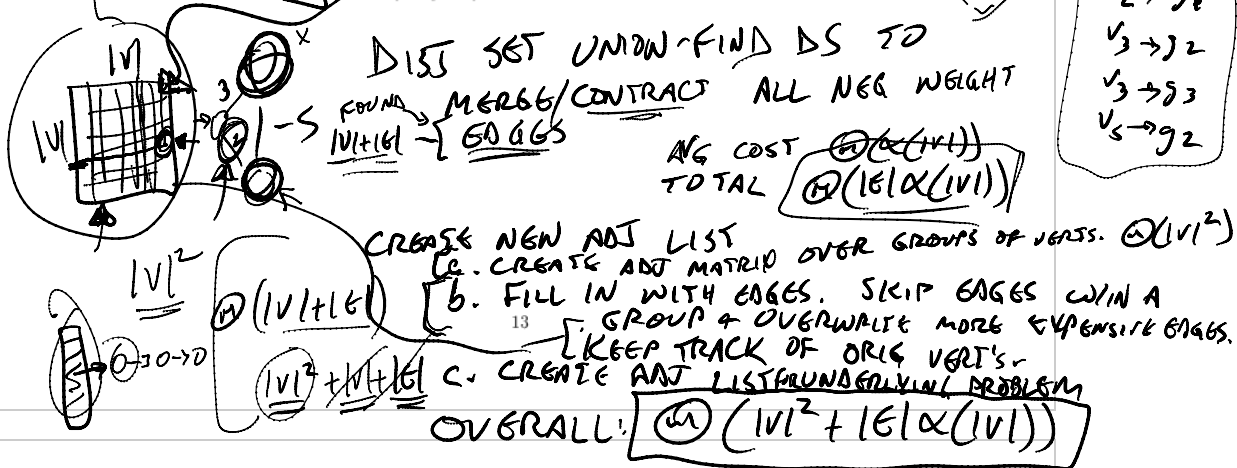 DIST SET UNION-FIND DS TO
MERGE/CONTRACT ALL NEG WEIGHT
EDGES
FOUND
|V|+|E|
S
3
x
|V|
|V|
AVG COST Θ(α(|V|))
TOTAL Θ(|E|α(|V|))
V3→g2
V3→g3
V5→g2
CREATE NEW ADJ LIST
a. CREATE ADJ MATRIX OVER GROUPS OF VERTS. Θ(|V|²)
b. FILL IN WITH EDGES. SKIP EDGES W/IN A
GROUP & OVERWRITE MORE EXPENSIVE EDGES.
KEEP TRACK OF ORIG VERT'S.
c. CREATE ADJ LIST FOR UNDERLYING PROBLEM
|V|²
Θ(|V|+|E|)
|V|²+|V|+|E|
13
OVERALL: Θ(|V|²+|E|α(|V|))